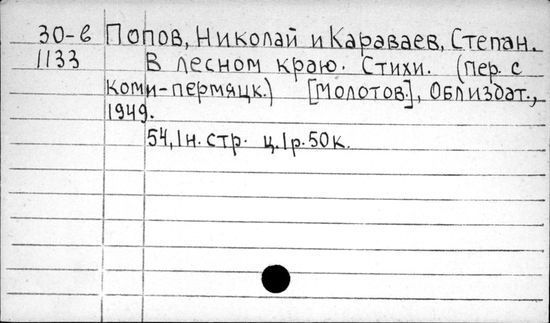 30-в Попов, Николай и Караваев, Степан.
1133 В лесном краю. Стихи. (пер. с
Коми-пермяцк.) [Молотов.], Облиздат.,
1949.
54,1н. стр. ц.1р.50к.